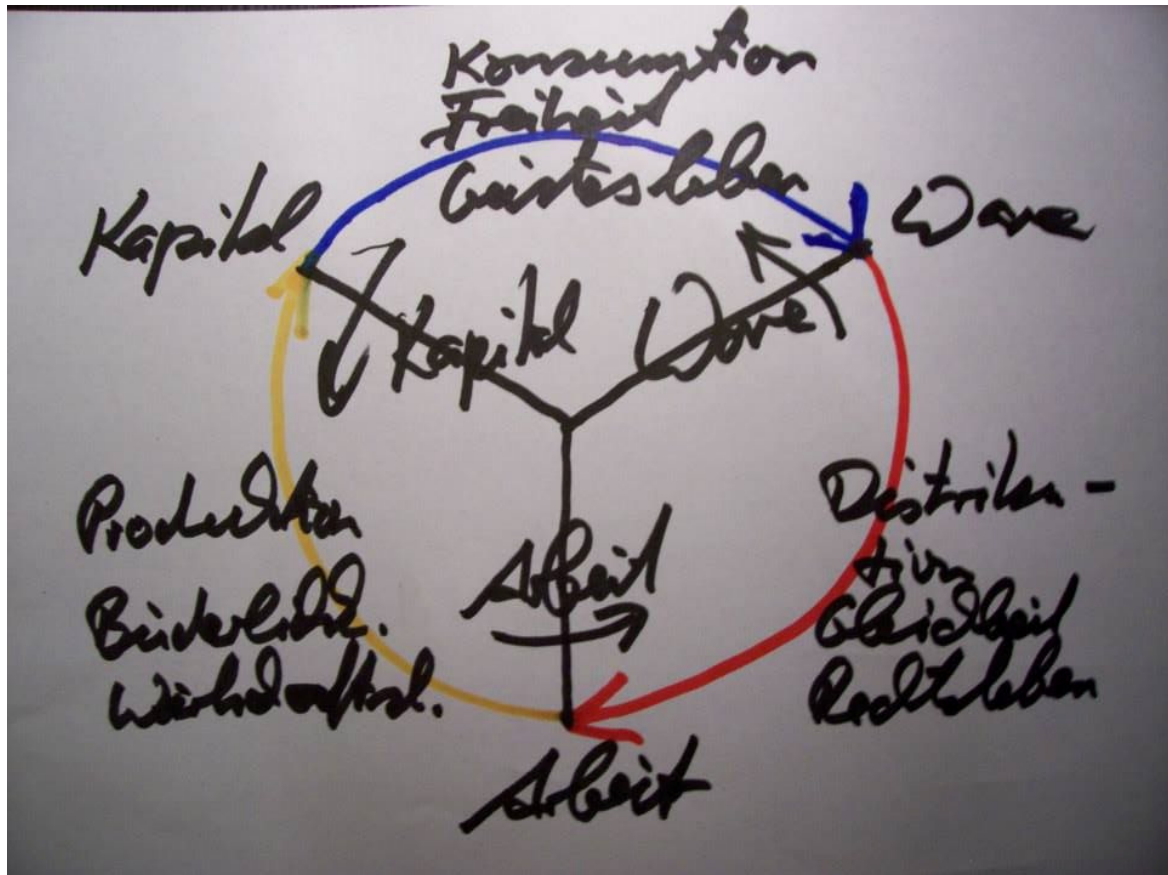 Konsumtion
Freiheit
Geistesleben
Kapital
Ware
Kapital
Ware
Produktion
Brüderlichk.
Wirtschaftsl.
Distribu-
tion
Gleichheit
Rechtsleben
Arbeit
Arbeit